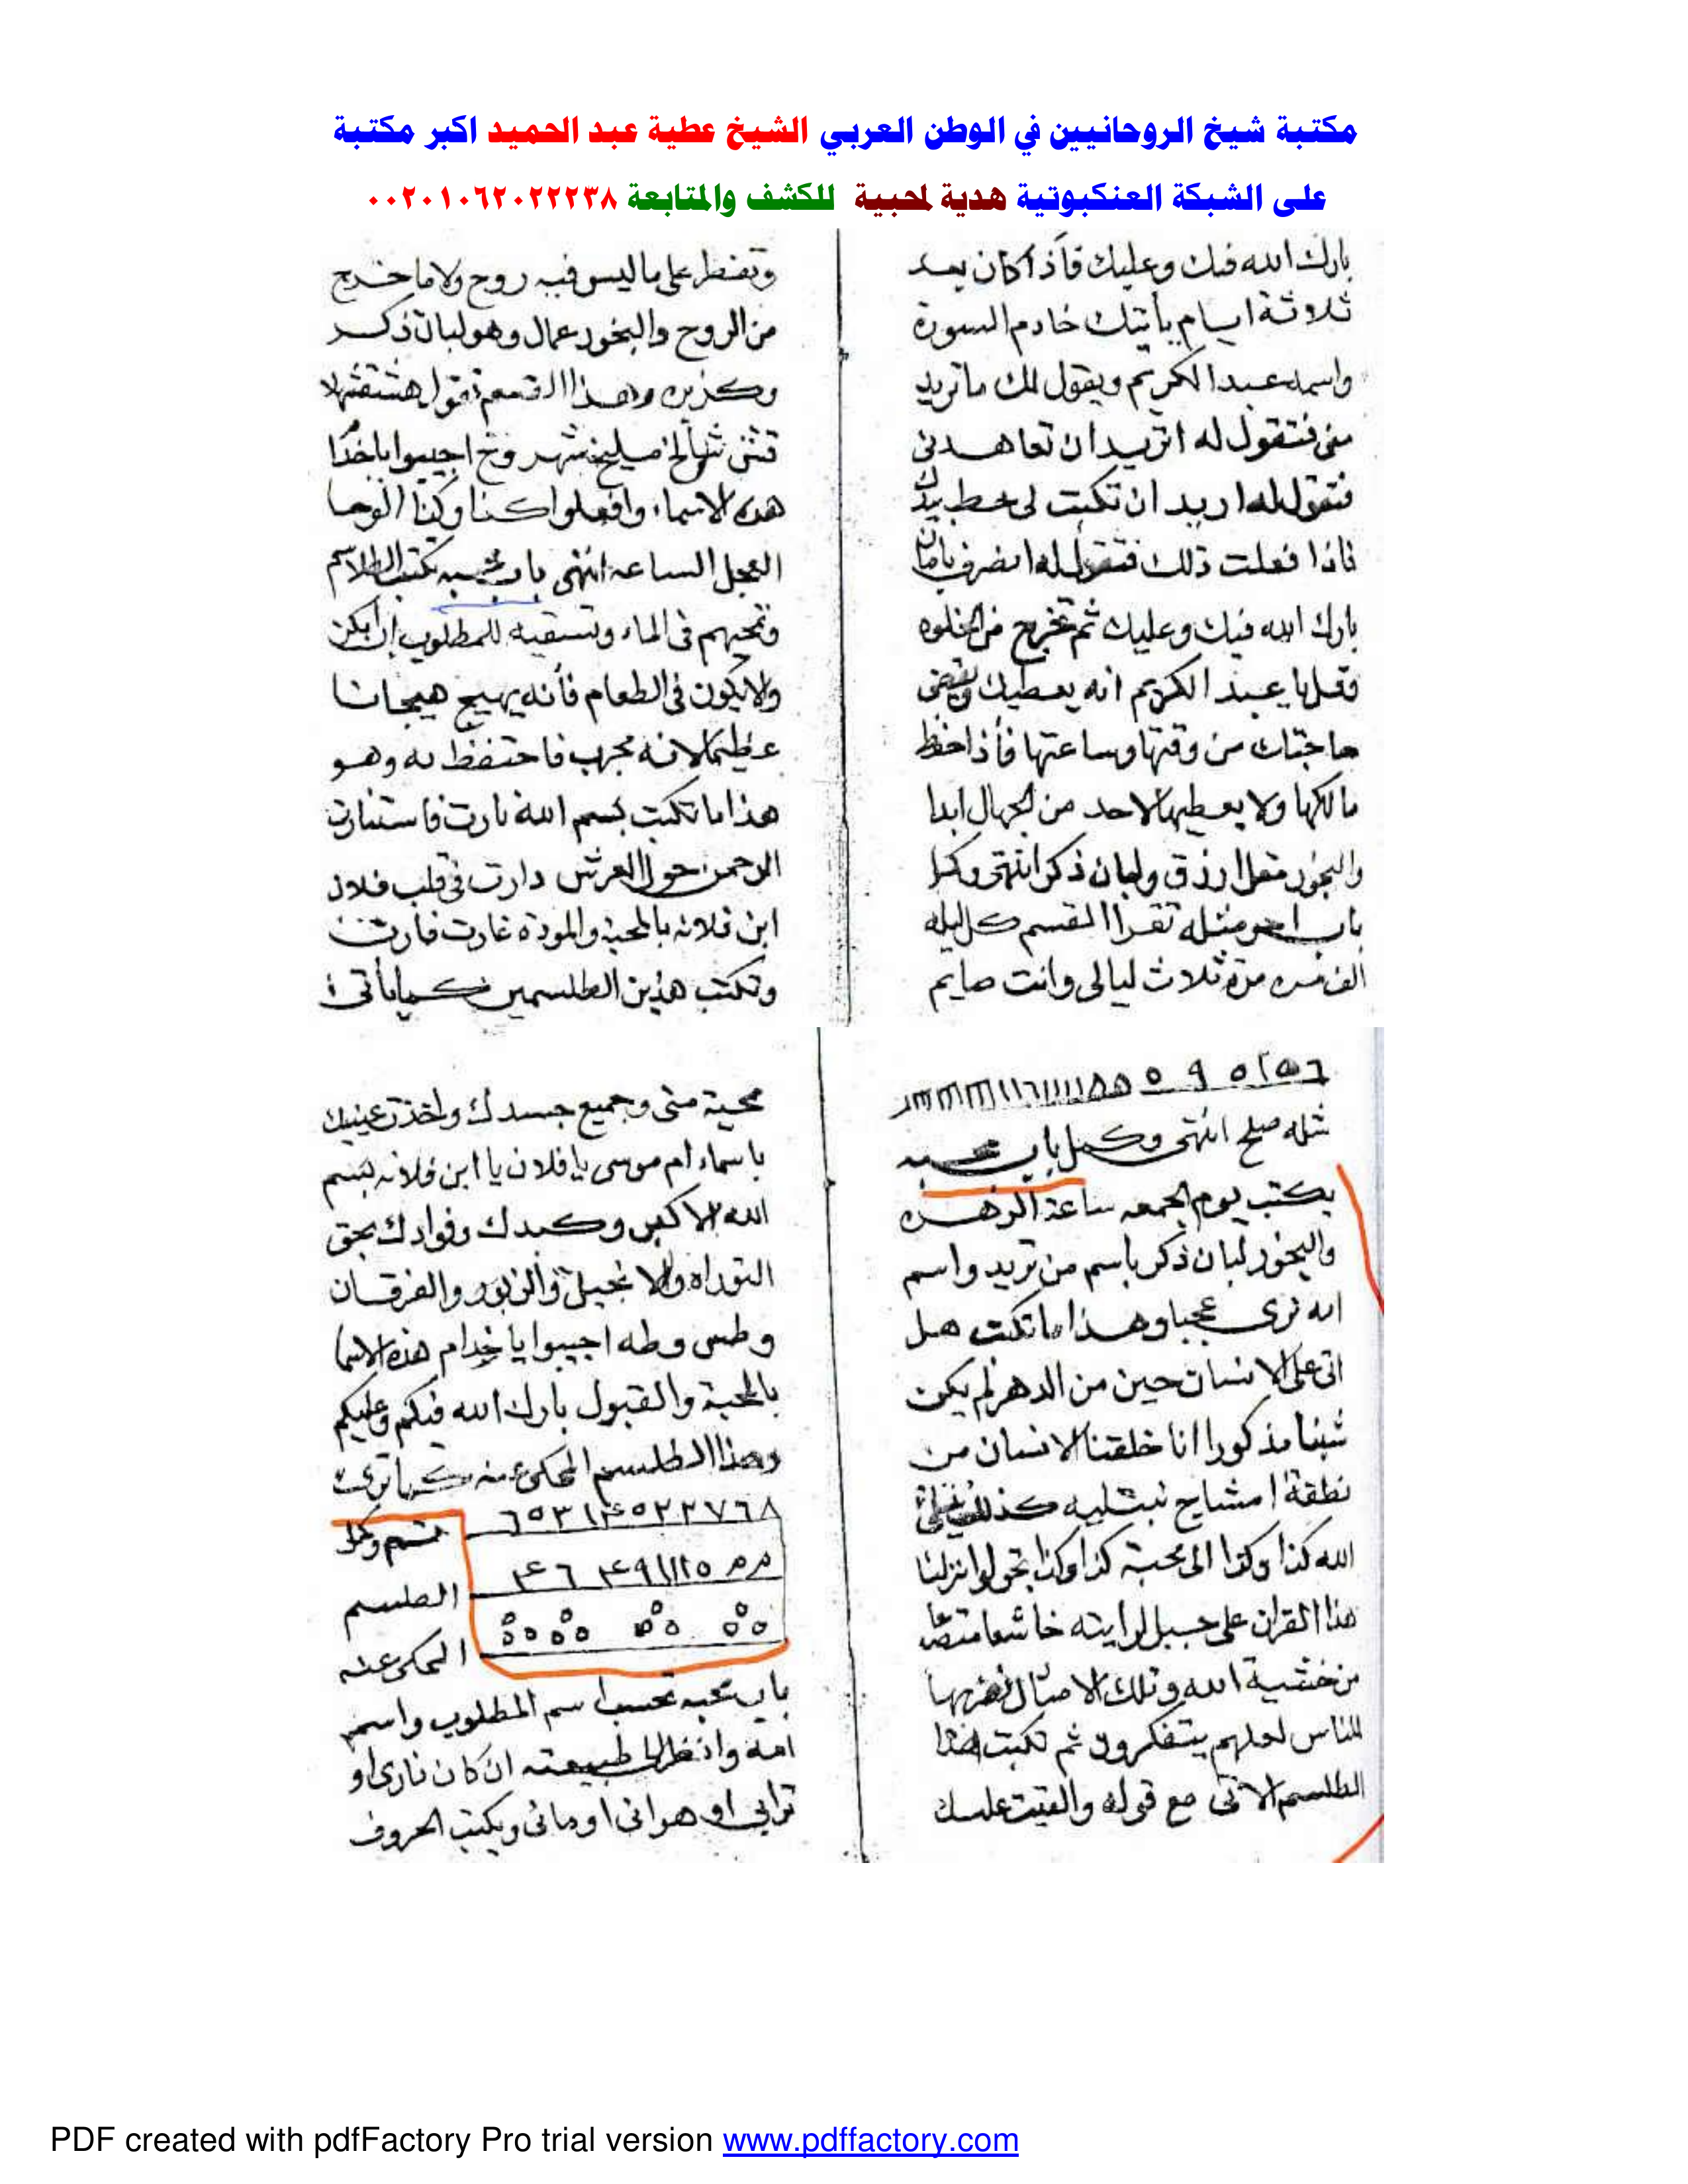 مكتبة شيخ الروحانيين في الوطن العربي الشيخ عطية عبد الحميد اكبر مكتبة
على الشبكة العنكبوتية هدية لمحبية للكشف والمتابعة ٠٠٢٠١٠٦٢٠٢٢٢٣٨
بارك الله فيك وعليك فأذا كان بعد
ثلاثة ايام يأتيك خادم السورة
واسمه عبد الكريم ويقول لك ماتريد
منى فتقول له اتريد ان تعاهدنى
فتقول له اريد ان تكتب لى خط يدك
فاذا فعلت ذلك فتقول له انصرف بامان
بارك الله فيك وعليك ثم تخرج من الخلوه
فقل يا عبد الكريم انه يعطيك ويقضى
حاجتك من وقتها وساعتها فأذا حفظ
مالكها ولا يعطيها لاحد من الجهال ابدا
والبخور مقل ازرق ولبان ذكر انتهى وكمل
باب اخر مثله تقرا القسم كل ليله
الف مره مرة ثلاث ليالى وانت صايم
وتفطر على ماليس فيه روح ولا ما خرج
من الروح والبخور عمال وهو لبان ذكر
وكزبره وهذا القسم تقول
اجيبوا ياخدام
هذه الاسماء وافعلوا كذا وكذا الوحا
العجل الساعه انتهى باب محبه تكتب الطلاسم
وتمحيهم فى الماء وتسقيه للمطلوب ان امكن
ولا يكون فى الطعام فأنه يهيج هيجانا
عظيما لانه مجرب فاحتفظ به وهو
هذا ما تكتب بسم الله نارت فاستنارت
الرحمن حول العرش دارت فى قلب فلان
ابن فلانه بالمحبة والمودة غارت فأرت
وتكتب هذين الطلسمين كما يأتى
مثله صلح انتهى وكمل باب محبه
يكتب يوم الجمعه ساعة الزهره
والبخور لبان ذكر باسم من تريد واسم
امه ترى عجبا وهذا ما تكتب هل
اتى على الانسان حين من الدهر لم يكن
شيئا مذكورا انا خلقنا الانسان من
نطفة امشاج نبتليه كذلك
الله كذا وكذا الى محبة كذا وكذا بحق لو انزلنا
هذا القران على جبل لرايته خاشعا متصدعا
من خشية الله وتلك الامثال نضربها
للناس لعلهم يتفكرون ثم تكتب هذا
الطلسم الاتى مع قوله والقيت عليك
محبة منى وجميع جسدك واخذت عينيك
باسماء ام موسى يا فلان يا ابن فلانه بسم
الله الاكبر وكبدك وفوادك بحق
التوراه والانجيل والزبور والفرقان
وطس وطه اجيبوا يا خدام هذه الاسما
بالمحبة والقبول بارك الله فيكم وعليكم
وهذا الطلسم المحكى عنه كما ترى
٦٥٣١٤٥٢٢٧٦٨
تم وكمل
الطلسم
المحكى عنه
باب محبه تحسب اسم المطلوب واسم
امه وانظر الى طبيعته ان كان نارى او
ترابى او هوائى او مائى ويكتب الحروف
PDF created with pdfFactory Pro trial version www.pdffactory.com